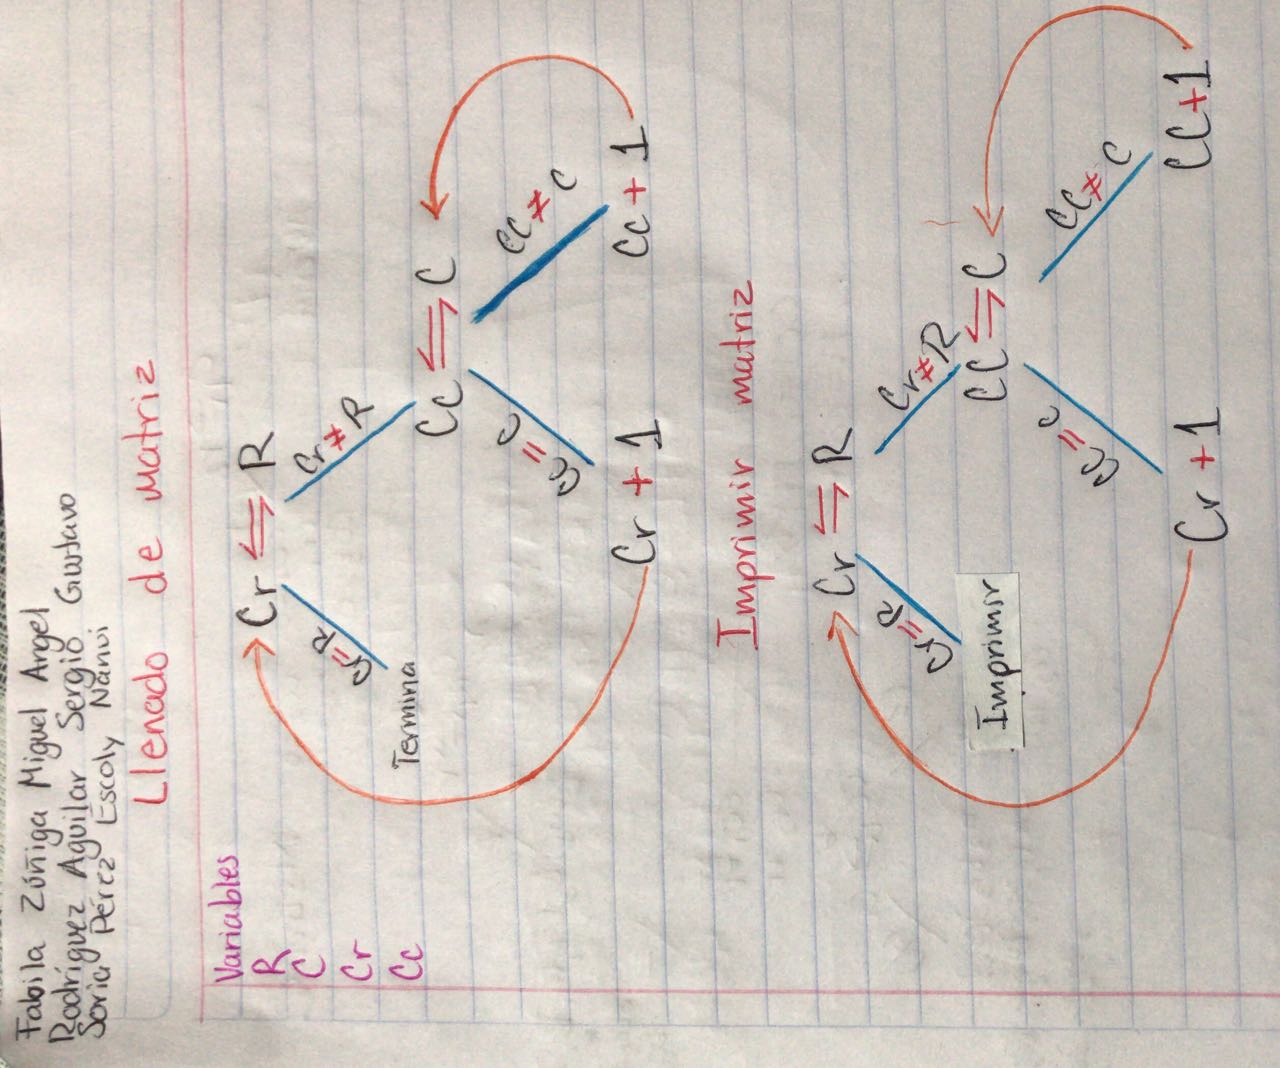 Fabila Zúñiga Miguel Angel
Rodríguez Aguilar Sergio Gustavo
Soria Pérez Escoly Nanvi
Llenado de matriz
Variables
R
C
Cr
Cc
Cr ⇌ R
Cr = R
Cr ≠ R
Termina
Cc ⇌ C
Cc = C
Cc ≠ C
Cr + 1
Cc + 1
Imprimir matriz
Cr ⇌ R
Cr = R
Cr ≠ R
Imprimir
CC ⇌ C
Cc = C
CC ≠ C
Cr + 1
CC + 1